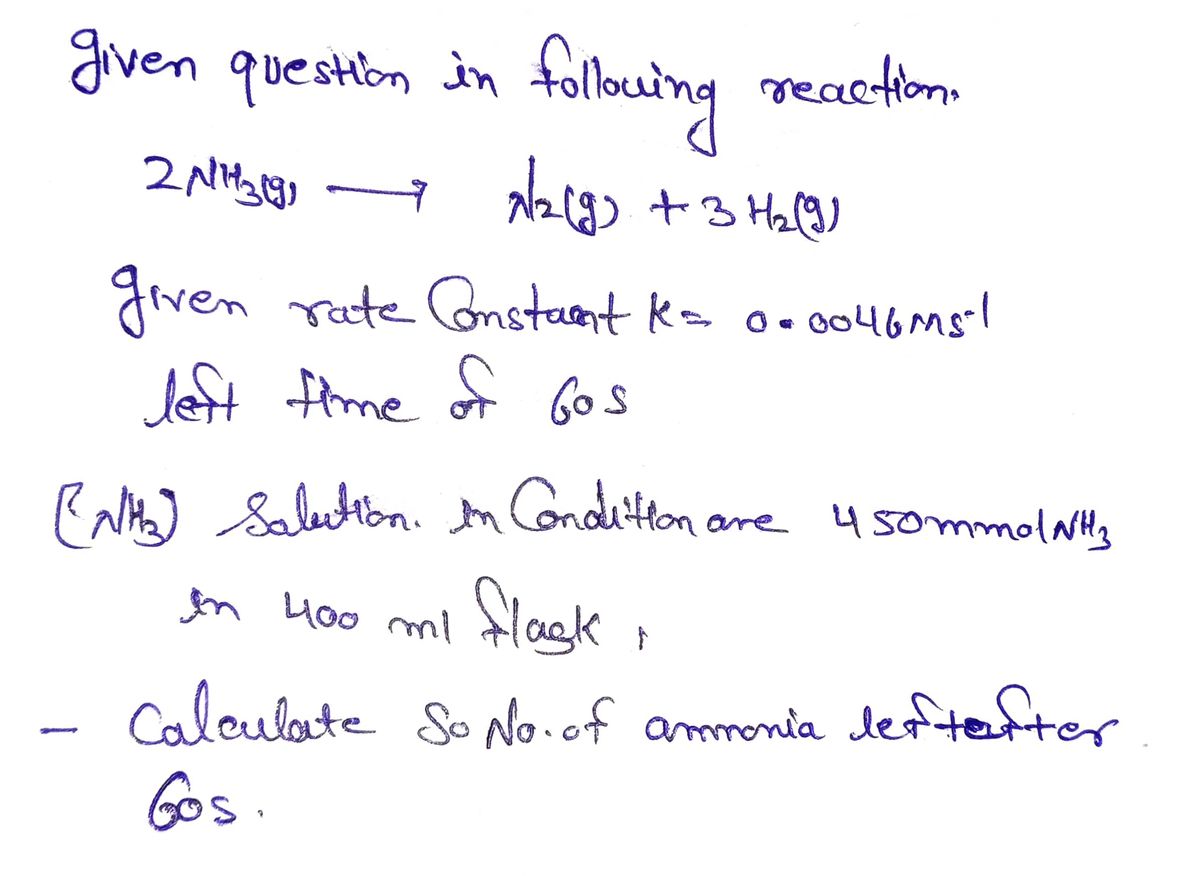 given question in following reaction.
2NH3(g) → N2(g) + 3H2(g)
given rate Constant k = 0.0046Ms-1
left time of 60s
[NH3] Solution. in Condition are 450mmol NH3
in 400 ml flask,
- Calculate So No. of ammonia left after
60s.